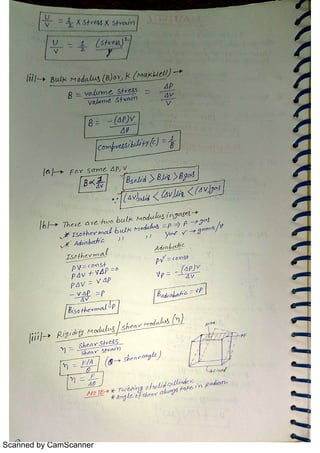 U/V = 1/2 × stress × strain
U/V = 1/2 (stress)²/Y
|ii|→ Bulk Modulus (B) or, K (Makhlell) →
B = volume stress / volume strain = ΔP / ΔV/V
B = -(ΔP)V / ΔP
Compressibility (c) = 1/B
|a|→ For same ΔP, V
B ∝ 1/ΔV
Bsolid > BLiq > Bgas
(ΔV)solid < (ΔV)liq < (ΔV)gas
|b|→ There are two bulk Modulus in gases →
* Isothermal bulk Modulus = P ⇒ P → gas
* Adiabatic " " γP
Isothermal
PV = const
PΔV + VΔP = 0
PΔV = VΔP
-VΔP/ΔV = P
Bisothermal = P
Adiabatic
PVʳ = const
γP = -(ΔP)V/ΔV
Badiabatic = γP
|iii|→ Rigidity Modulus / shear modulus (η)
η = shear stress / shear strain
η = F/A / θ (θ → shear angle)
η = F/Aθ
Note → * Twisting of solid cylinder
* Angle of shear always take in radian.
Scanned by CamScanner